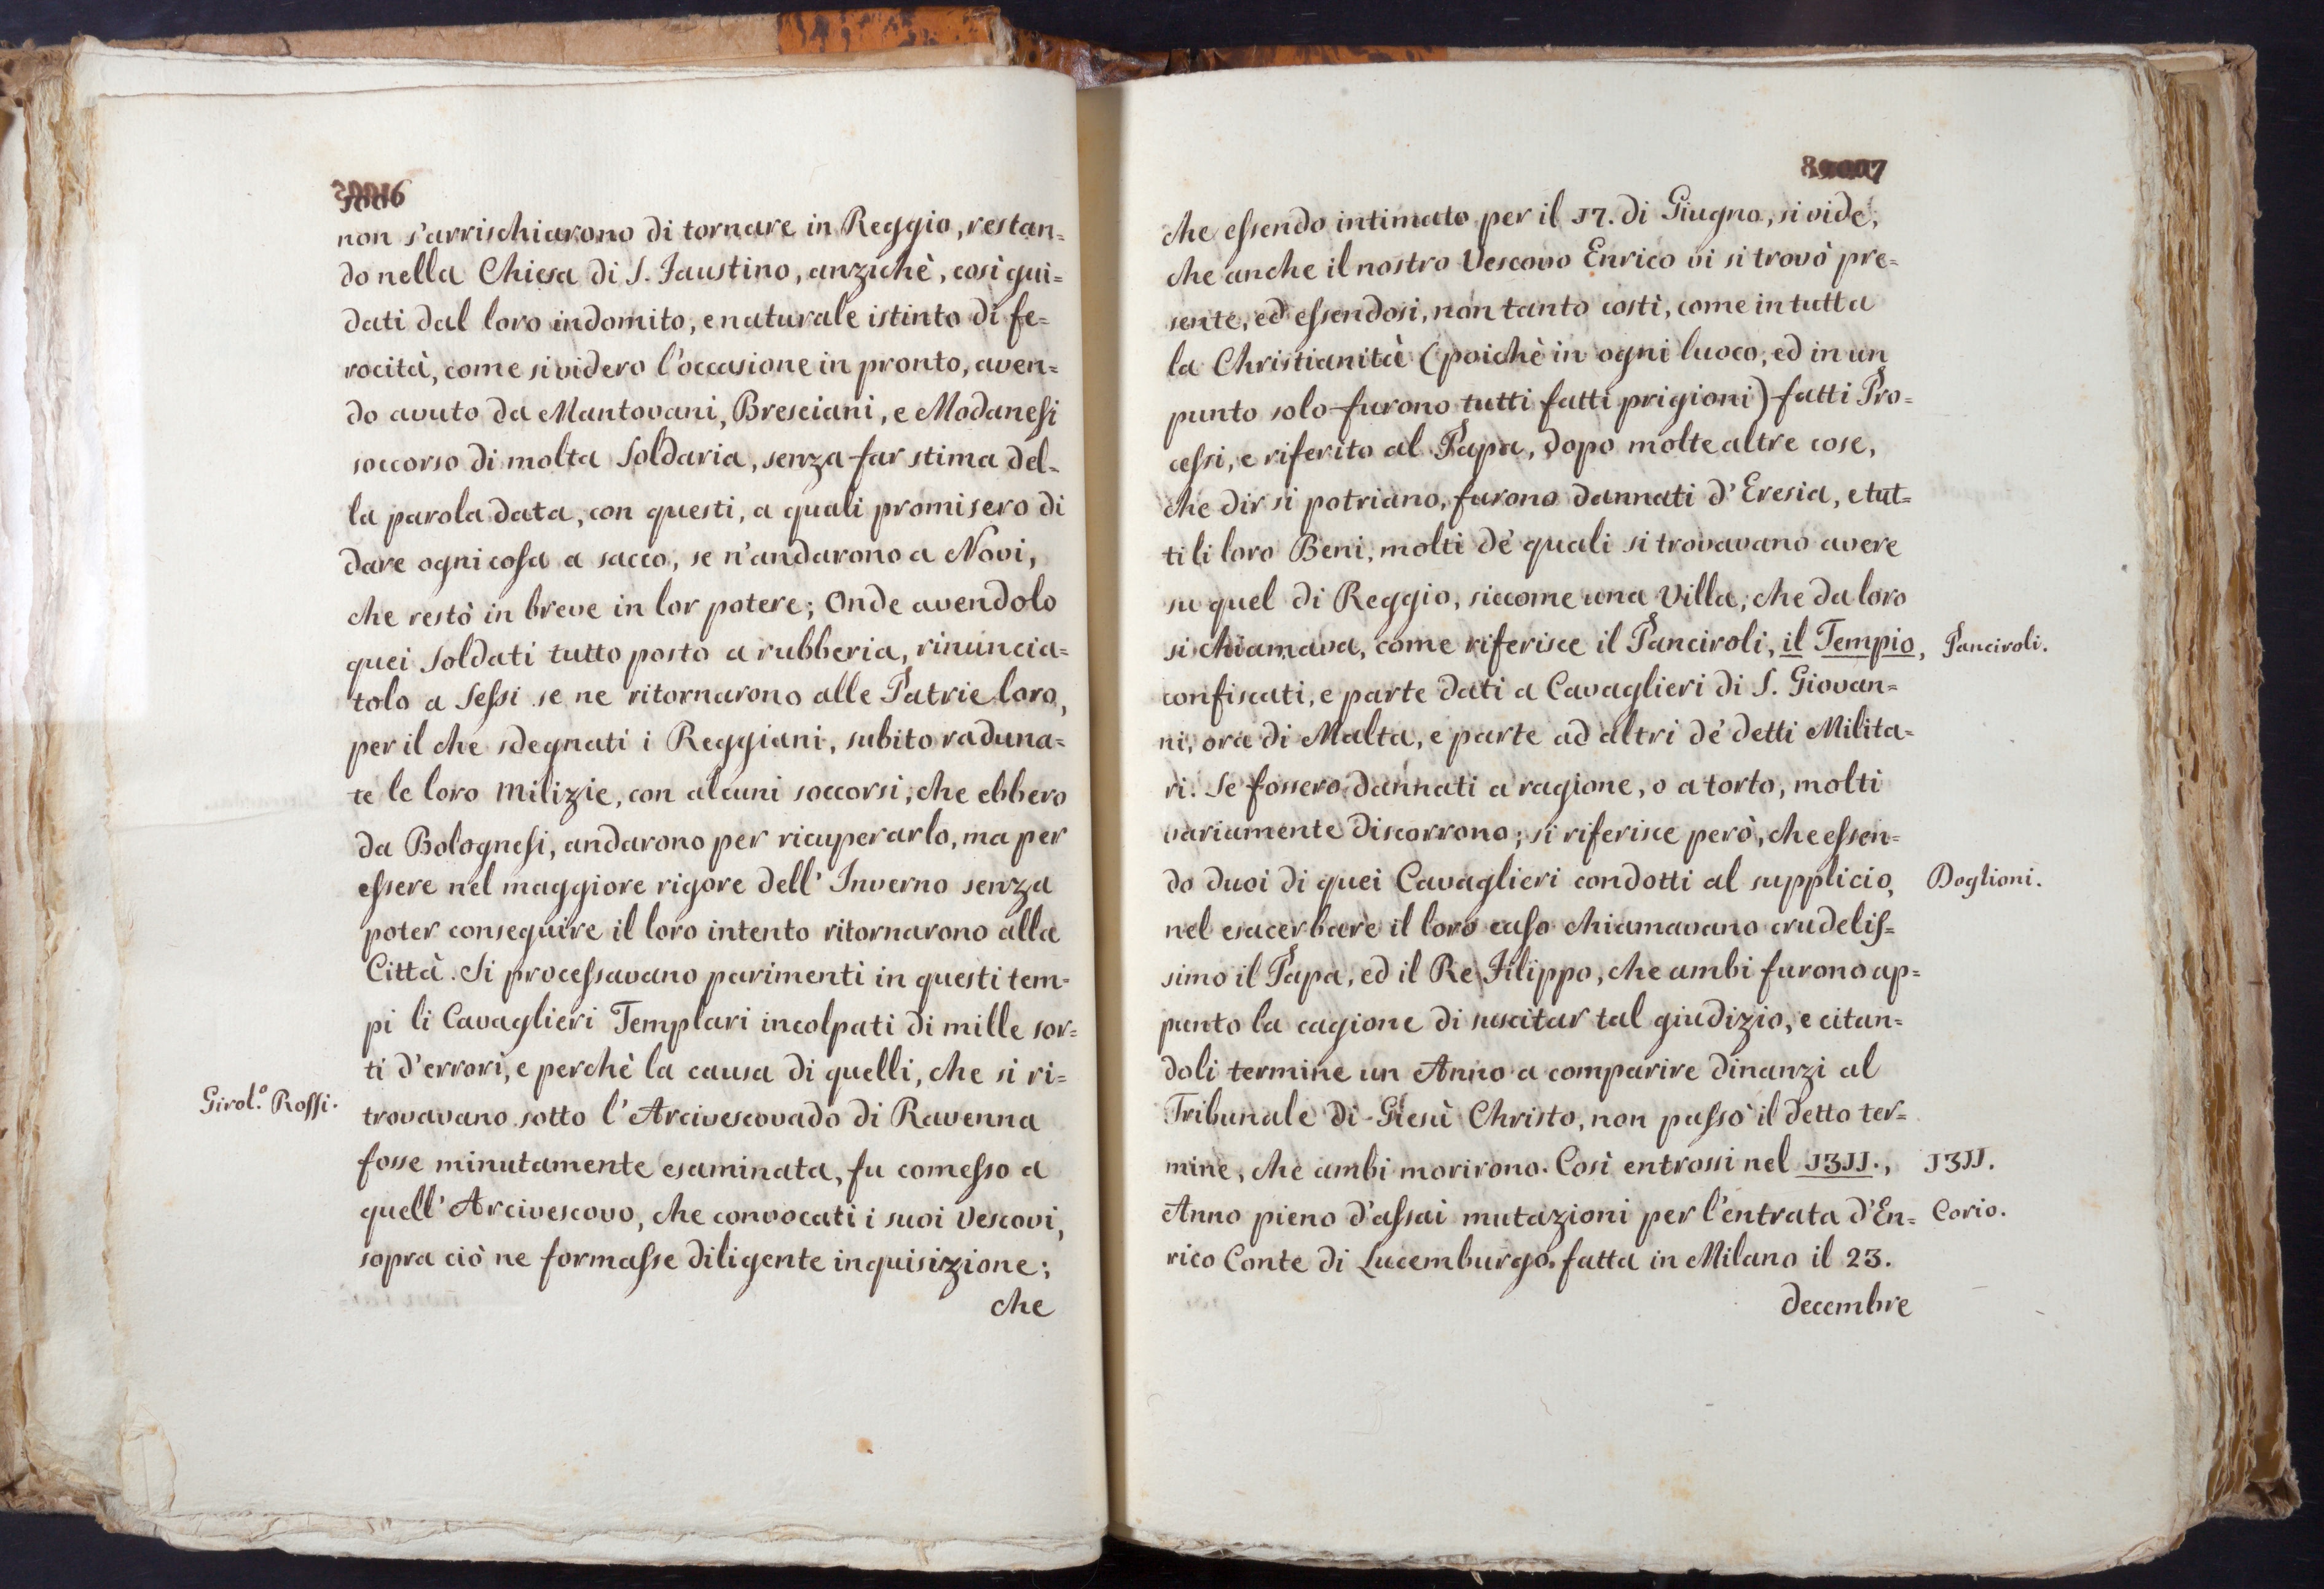 non s'arrischiarono di tornare in Reggio, restan=
do nella Chiesa di S. Faustino, anzichè, così gui=
dati dal loro indomito, e naturale istinto di fe=
rocità, come si videro l'occasione in pronto, aven=
do avuto da Mantovani, Bresciani, e Modanesi
soccorso di molta Soldaria, senza far stima del=
la parola data, con questi, a quali promisero di
dare ogni cosa a sacco, se n'andarono a Novi,
che restò in breve in lor potere; Onde avendolo
quei Soldati tutto posto a rubberia, rinuncia=
tolo a Sessi se ne ritornarono alle Patrie loro,
per il che sdegnati i Reggiani, subito raduna=
te le loro Milizie, con alcuni soccorsi, che ebbero
da Bolognesi, andarono per ricuperarlo, ma per
essere nel maggiore rigore dell' Inverno senza
poter conseguire il loro intento ritornarono alla
Città. Si processavano parimenti in questi tem=
pi li Cavaglieri Templari incolpati di mille sor=
ti d'errori, e perchè la causa di quelli, che si ri=
Girol.º Rossi.
trovavano sotto l'Arcivescovado di Ravenna
fosse minutamente esaminata, fu comesso a
quell' Arcivescovo, che convocati i suoi Vescovi,
sopra ciò ne formasse diligente inquisizione;
che
che essendo intimato per il 17. di Giugno, si vide,
che anche il nostro Vescovo Enrico vi si trovò pre=
sente, ed essendosi, non tanto costì, come in tutta
la Christianità (poichè in ogni luoco, ed in un
punto solo furono tutti fatti prigioni) fatti Pro=
cessi, e riferito al Papa, dopo molte altre cose,
che dir si potriano, furono dannati d'Eresia, e tut=
ti li loro Beni, molti de' quali si trovavano avere
su quel di Reggio, siccome una Villa, che da loro
si chiamava, come riferisce il Panciroli, il Tempio,
Panciroli.
confiscati, e parte dati a Cavaglieri di S. Giovan=
ni, ora di Malta, e parte ad altri de' detti Milita=
ri. Se fossero dannati a ragione, o a torto, molti
variamente discorrono; si riferisce però, che essen=
do duoi di quei Cavaglieri condotti al supplicio,
Doglioni.
nel esacerbare il loro caso chiamavano crudelis=
simo il Papa, ed il Re Filippo, che ambi furono ap=
punto la cagione di suscitar tal giudizio, e citan=
doli termine un Anno a comparire dinanzi al
Tribunale di Giesù Christo, non passò il detto ter=
mine, che ambi morirono. Così entrossi nel 1311.,
1311.
Anno pieno d'assai mutazioni per l'entrata d'En=
Corio.
rico Conte di Lucemburgo, fatta in Milano il 23.
decembre